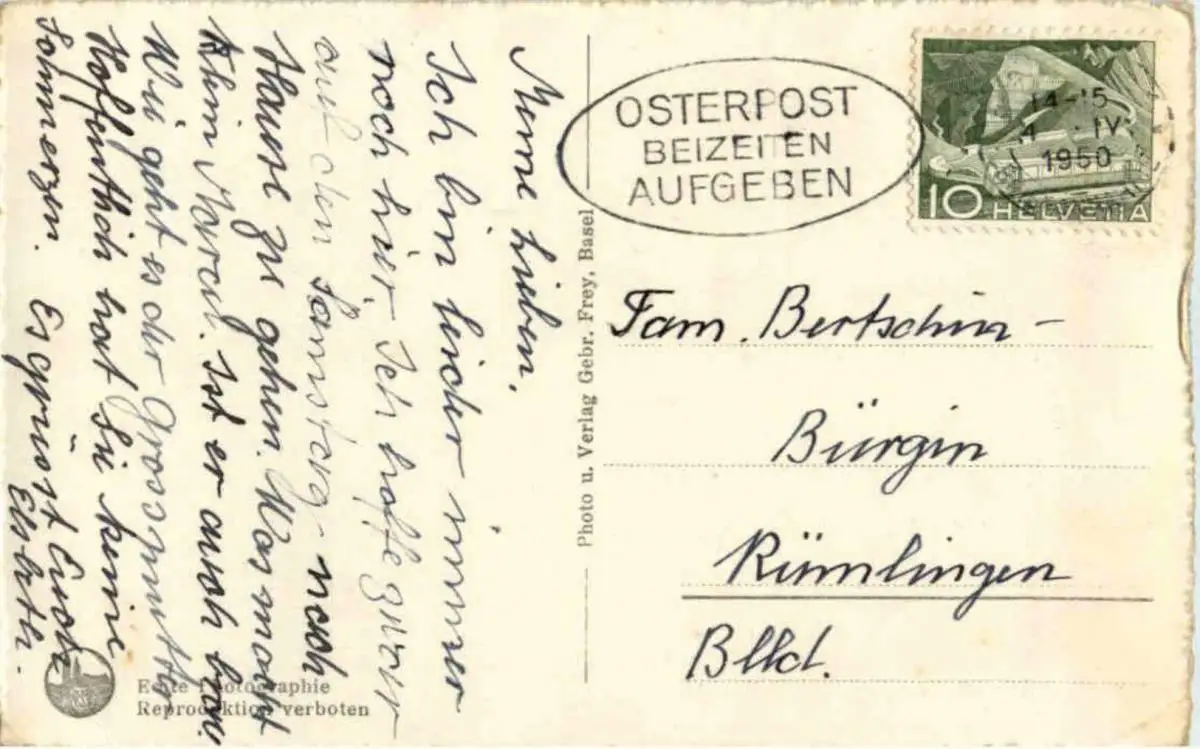 Meine Lieben.
Ich bin leider immer
noch hier. Ich hoffe zuver
auf den Samstag noch
Hause zu gehen. Was macht
klein Marcel. Ist er auch brav.
Wie geht es der Grossmutter
Hoffentlich hat Sie keine
Schmerzen. Es grüsst Euch
Elsbeth.
Photo u. Verlag Gebr. Frey, Basel
OSTERPOST
BEIZEITEN
AUFGEBEN
14-15
4. IV.
1950
10 HELVETIA
Fam. Bertschin-
Bürgin
Rümlingen
Bllld.
Echte Photographie
Reproduktion verboten